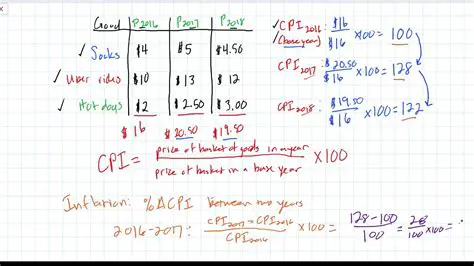 Good P2016 P2017 P2018
✓ Socks $4 $5 $4.50
✓ Uber rides $10 $13 $12
✓ Hot dogs $2 $2.50 $3.00
$16 $20.50 $19.50
CPI2016: $16/$16 ×100 = 100
(base year)
CPI2017: $20.50/$16 ×100 = 128
CPI2018: $19.50/$16 ×100 = 122
CPI = price of basket of goods in a year / price of basket in a base year ×100
Inflation: %ΔCPI between two years
2016-2017: CPI2017 - CPI2016 / CPI2016 ×100 = 128-100/100 = 28/100 ×100 =